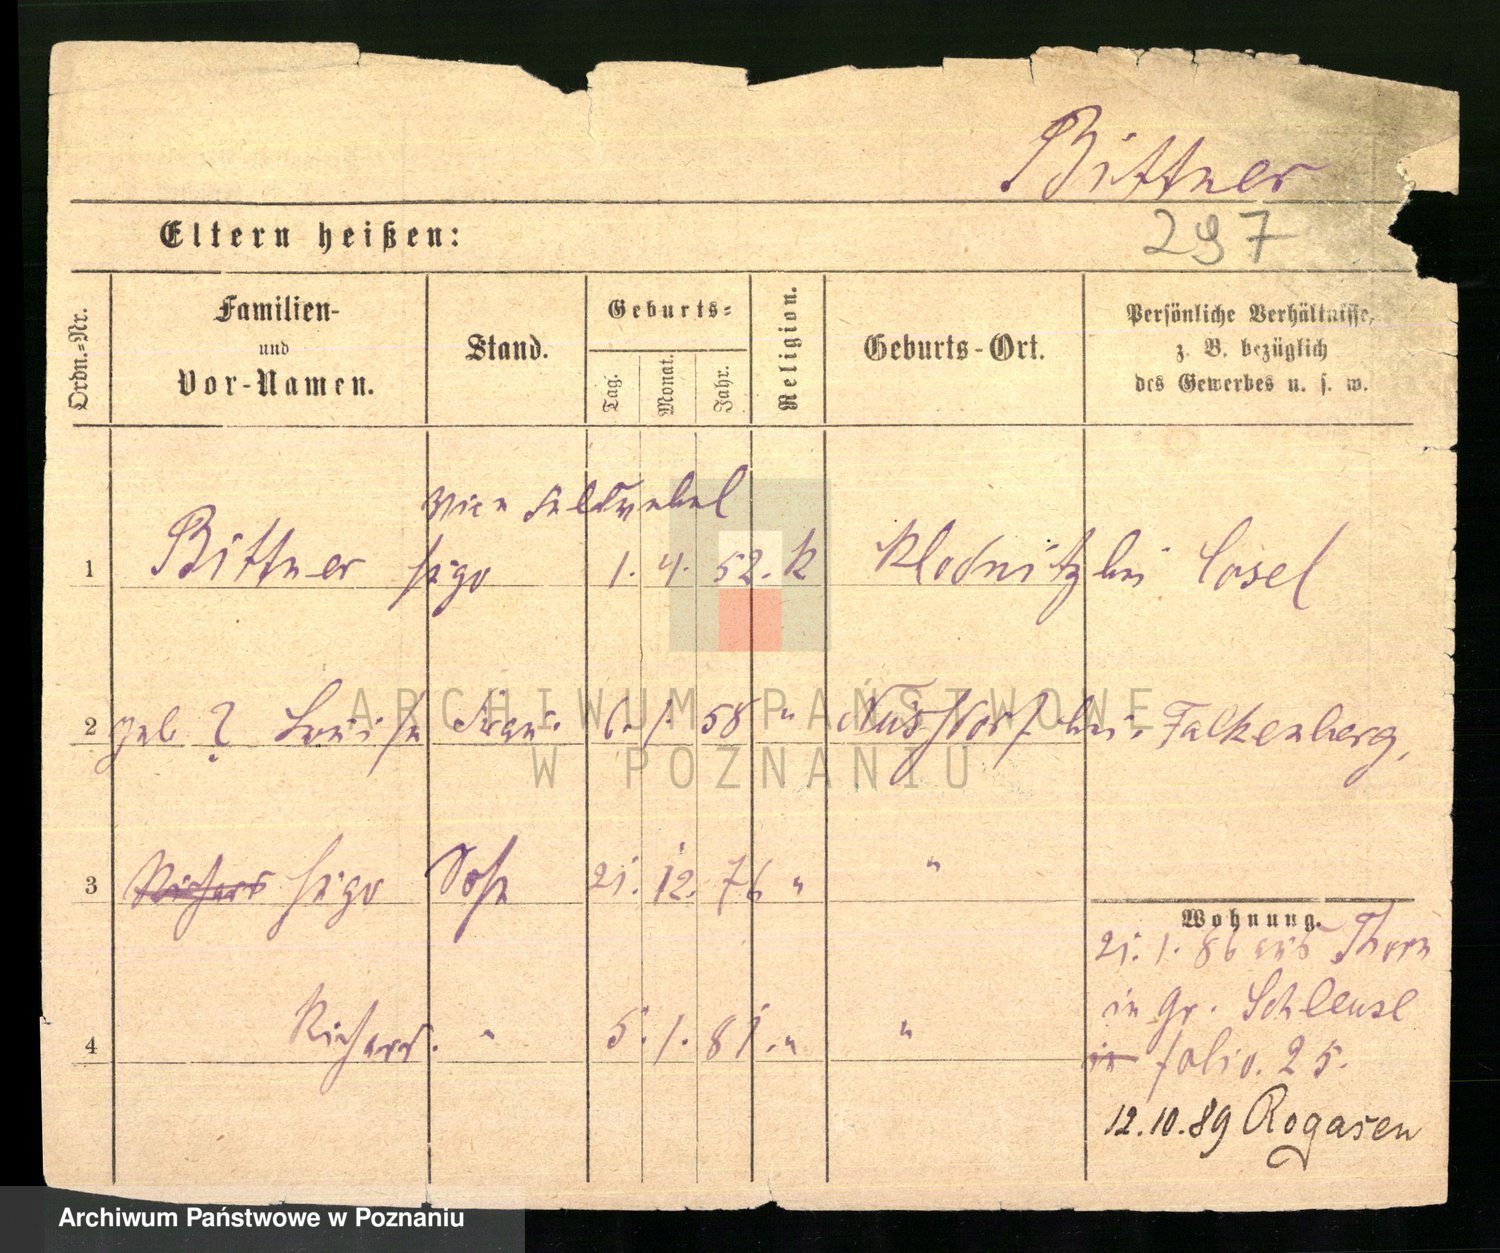 Bittner
Eltern heißen:
297
Ordn.=Nr.
Familien-
und
Vor-Namen.
Stand.
Geburts=
Tag.
Monat.
Jahr.
Religion.
Geburts-Ort.
Persönliche Verhältnisse,
z. B. bezüglich
des Gewerbes u. s. w.
Vice Feldwebel
1 Bittner Hugo 1. 4. 52. K Klodnitz bei Cosel
2 geb ? Louise Frau. 6. 1. 58 " bei Falkenberg,
3 Richard Hugo Sohn 21. 12. 76 " "
4 Richard. " 5. 1. 81. " "
Wohnung.
21. 1. 86 aus Thorn
in Gr. Schleuse
in folio. 25.
12.10.89 Rogasen
ARCHIWUM PAŃSTWOWE
W POZNANIU
Archiwum Państwowe w Poznaniu